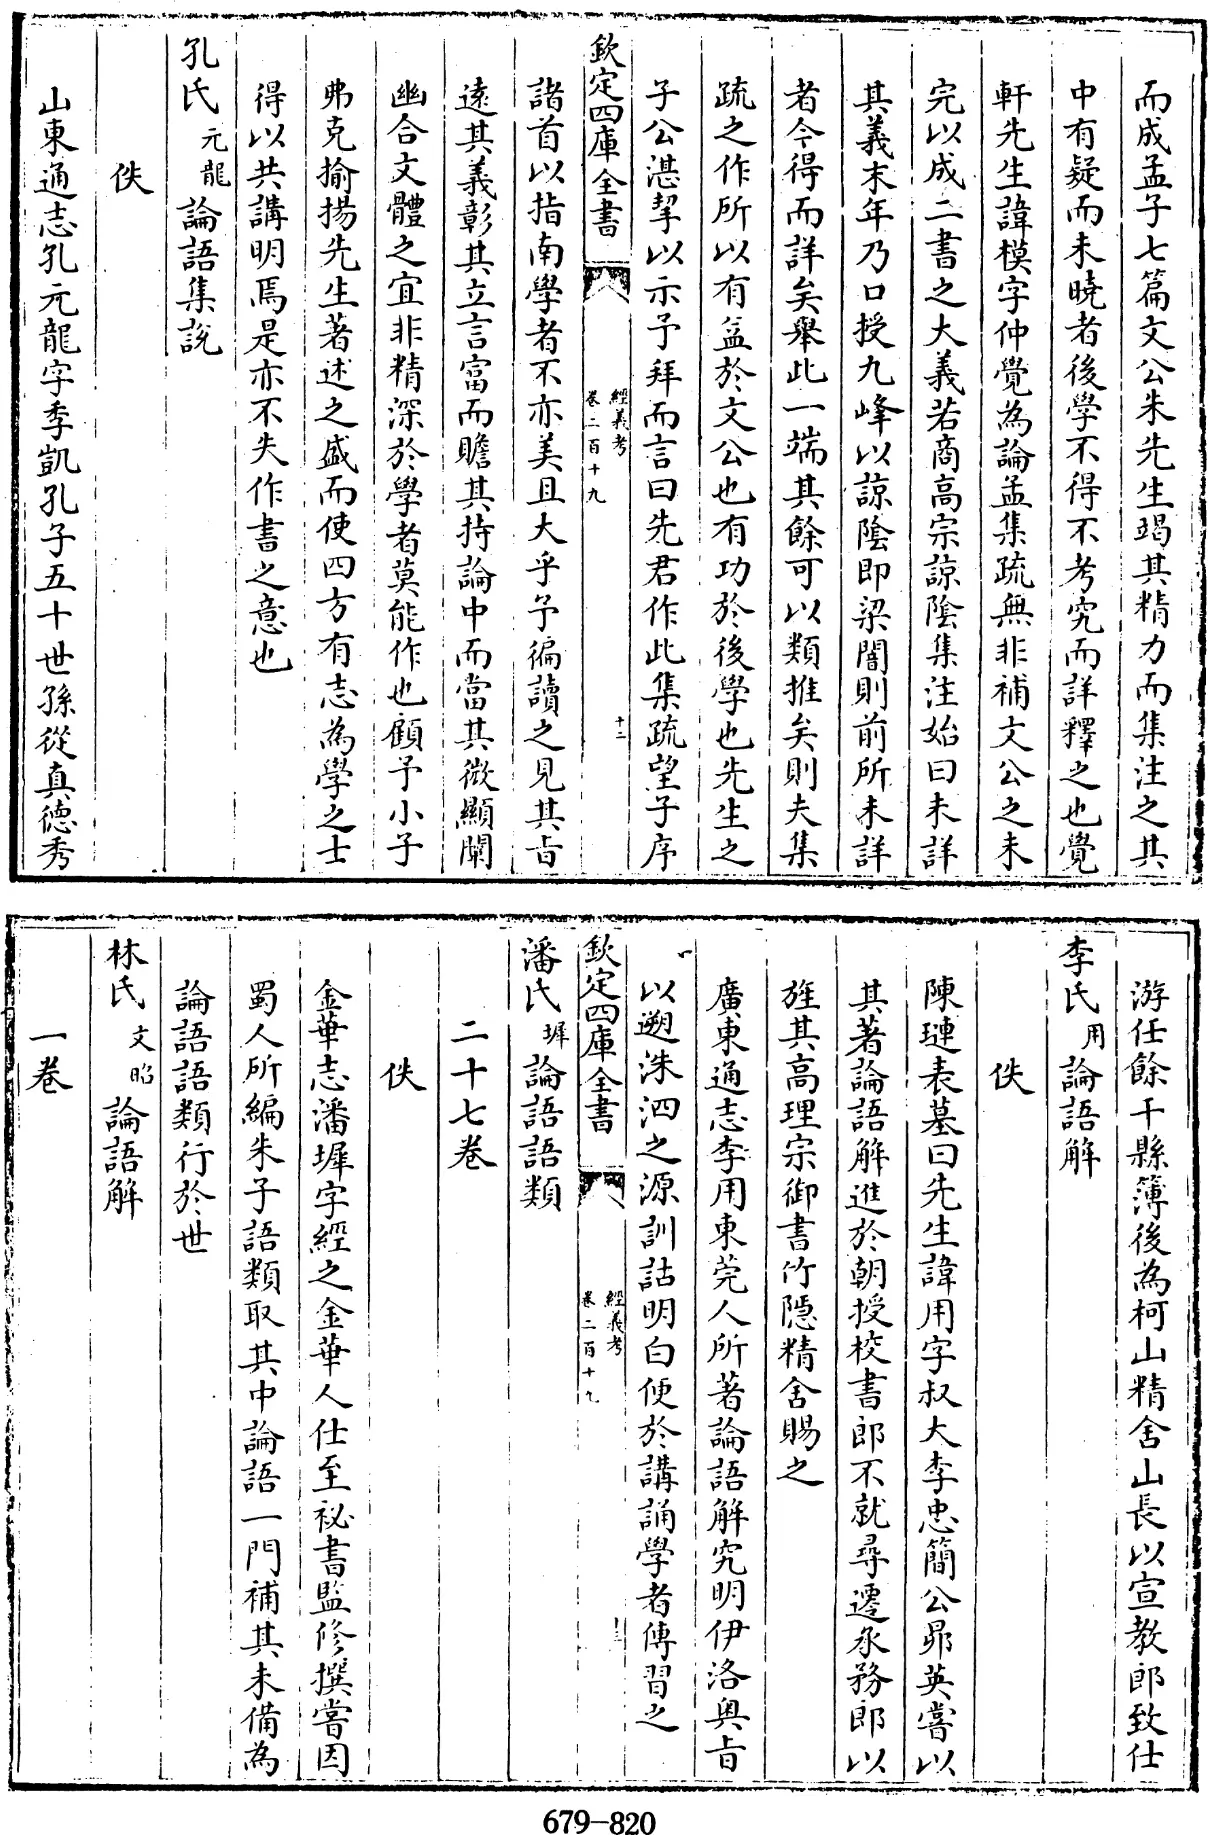 而成孟子七篇文公朱先生竭其精力而集注之其
中有疑而未曉者後學不得不考究而詳釋之也覺
軒先生諱模字仲覺為論孟集疏無非補文公之未
完以成二書之大義若商高宗諒陰集注始曰未詳
其義末年乃口授九峰以諒陰即梁闇則前所未詳
者今得而詳矣舉此一端其餘可以類推矣則夫集
疏之作所以有益於文公也有功於後學也先生之
子公湛挈以示予拜而言曰先君作此集疏望子序
欽定四庫全書
經義考
卷二百十九
十二
諸首以指南學者不亦美且大乎予徧讀之見其旨
遠其義彰其立言富而贍其持論中而當其微顯闡
幽合文體之宜非精深於學者莫能作也顧予小子
弗克揄揚先生著述之盛而使四方有志為學之士
得以共講明焉是亦不失作書之意也
孔氏元龍論語集說
佚
山東通志孔元龍字季凱孔子五十世孫從真德秀
游任餘干縣簿後為柯山精舍山長以宣教郎致仕
李氏用論語解
佚
陳璉表墓曰先生諱用字叔大李忠簡公昴英嘗以
其著論語解進於朝授校書郎不就尋遷承務郎以
旌其高理宗御書竹隱精舍賜之
廣東通志李用東莞人所著論語解究明伊洛奧旨
以遡洙泗之源訓詁明白便於講誦學者傳習之
欽定四庫全書
經義考
卷二百十九
十三
潘氏墀論語語類
二十七卷
佚
金華志潘墀字經之金華人仕至祕書監修撰嘗因
蜀人所編朱子語類取其中論語一門補其未備為
論語語類行於世
林氏文昭論語解
一卷
679-820